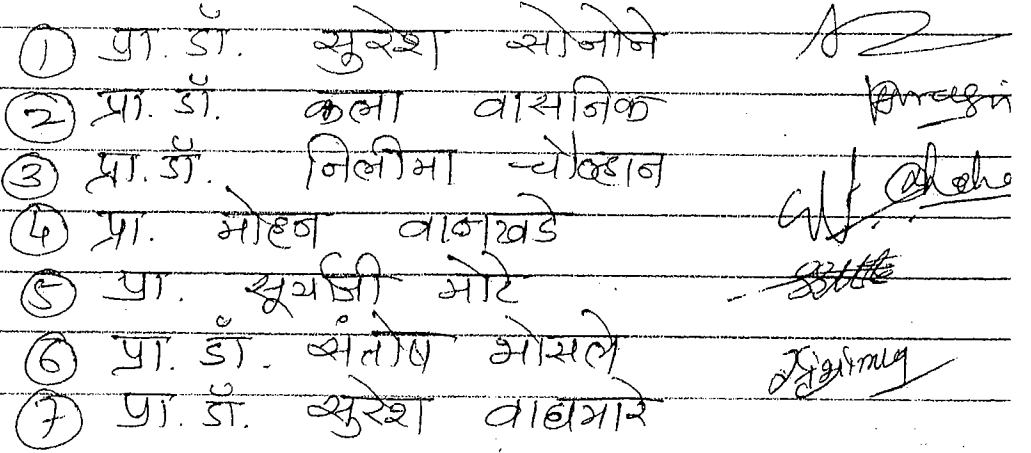 ① प्रा. डॉ. सुरेश सोनोने
② प्रा. डॉ. कला वासनिक
③ प्रा. डॉ. निलीमा चौव्हान
④ प्रा. मोहन वानखडे
⑤ प्रा. सूर्याजी मोटे
⑥ प्रा. डॉ. संतोष भोसले
⑦ प्रा. डॉ. सुरेश वाघमारे